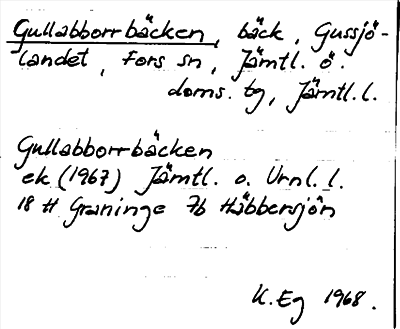 Gullabborrbäcken, bäck, Gussjö-
landet, Fors sn, Jämtl. ö.
doms. tg, Jämtl. l.
Gullabborrbäcken
ek (1967) Jämtl. o. Urnl. l.
18 H Graninge 7b Häbbersjön
K. Eg 1968.